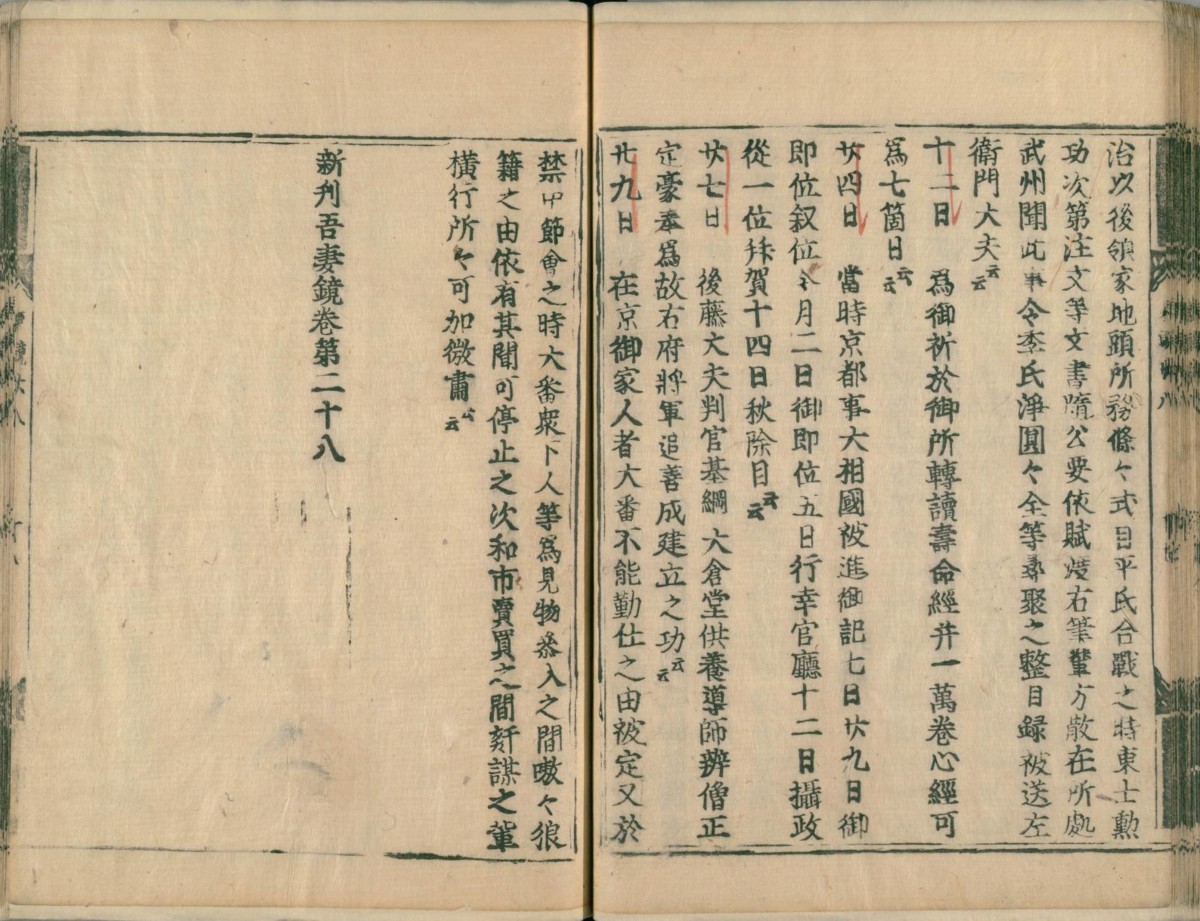 治以後領家地頭所務條々式目平氏合戰之時東士勲
功次第注文等文書隨公要依賦渡右筆輩方散在所處
武州聞此事令季氏淨圓々全等尋聚之整目録被送左
衛門大夫云云
十二日　爲御祈於御所轉讀壽命經幷一萬卷心經可
爲七箇日云云
廿四日　當時京都事大相國被進御記七日廿九日御
即位叙位今月二日御即位五日行幸官廳十二日攝政
從一位拜賀十四日秋除目云云
廿七日　後藤大夫判官基綱　大倉堂供養導師辨僧正
定豪奉爲故右府將軍追善成建立之功云云
廿九日　在京御家人者大番不能勤仕之由被定又於
禁中節會之時大番衆下人等爲見物參入之間嗷々狼
籍之由依有其聞可停止之次和市賣買之間姧謀之輩
横行所々可加徴肅云云
新刊吾妻鏡卷第二十八